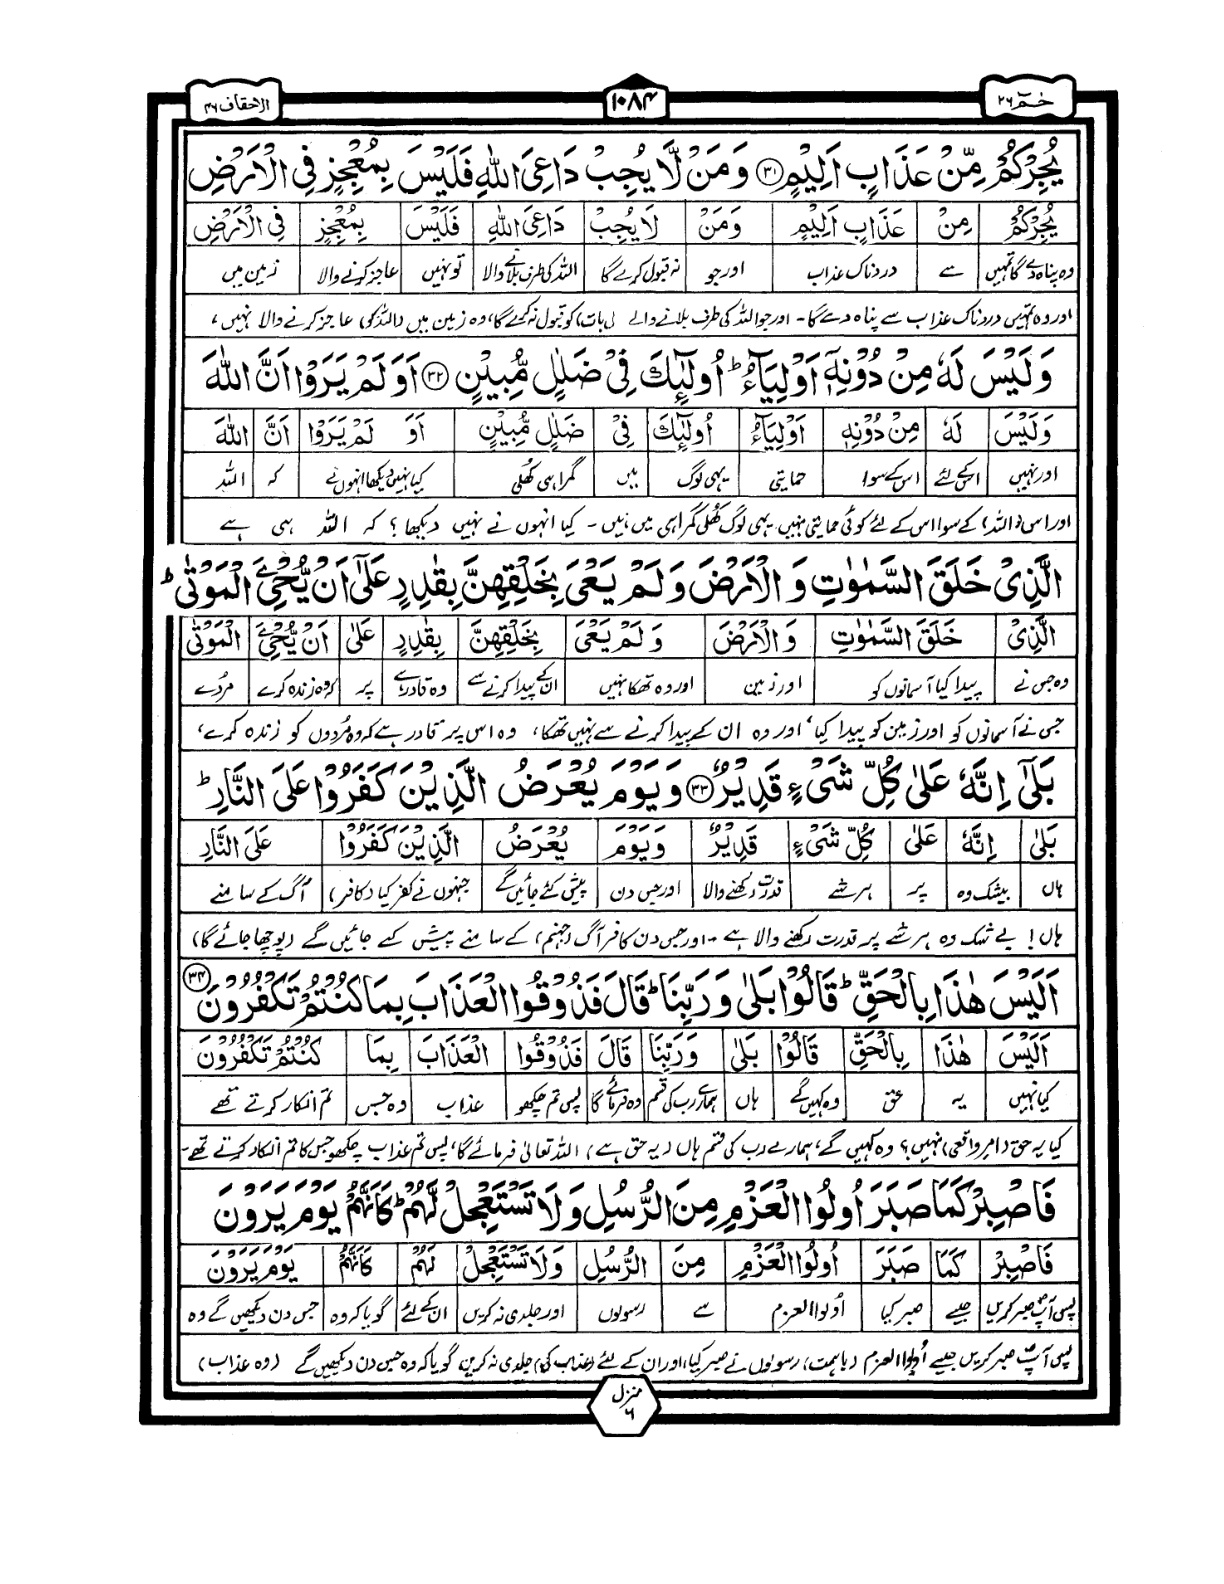 حٰمٓ ۲۶
۱۰۸۴
الاحقاف ۴۶
يُجِرْكُمْ مِّنْ عَذَابٍ اَلِيْمٍ ۝۳۱ وَمَنْ لَّا يُجِبْ دَاعِىَ اللّٰهِ فَلَيْسَ بِمُعْجِزٍ فِى الْاَرْضِ
يُجِرْكُمْ مِنْ عَذَابٍ اَلِيْمٍ وَمَنْ لَا يُجِبْ دَاعِىَ اللّٰهِ فَلَيْسَ بِمُعْجِزٍ فِى الْاَرْضِ
وہ پناہ دے گا تمہیں سے دردناک عذاب اور جو نہ قبول کرے گا اللہ کی طرف بلانے والا تو نہیں عاجز کرنے والا زمین میں
اور وہ تمہیں دردناک عذاب سے پناہ دے گا۔ اور جو اللہ کی طرف بلانے والے (کی بات) کو قبول نہ کرے گا، وہ زمین میں (اللہ کو) عاجز کرنے والا نہیں،
وَلَيْسَ لَهٗ مِنْ دُوْنِهٖٓ اَوْلِيَآءُ ؕ اُولٰٓئِكَ فِىْ ضَلٰلٍ مُّبِيْنٍ ۝۳۲ اَوَلَمْ يَرَوْا اَنَّ اللّٰهَ
وَلَيْسَ لَهٗ مِنْ دُوْنِهٖ اَوْلِيَآءُ اُولٰٓئِكَ فِىْ ضَلٰلٍ مُّبِيْنٍ اَوَ لَمْ يَرَوْا اَنَّ اللّٰهَ
اور نہیں اس کے لئے اس کے سوا حمایتی یہی لوگ میں گمراہی کھلی کیا نہیں دیکھا انہوں نے کہ اللہ
اور اس (اللہ) کے سوا اس کے لئے کوئی حمایتی نہیں۔ یہی لوگ کھلی گمراہی میں ہیں۔ کیا انہوں نے نہیں دیکھا؟ کہ اللہ ہی ہے
الَّذِىْ خَلَقَ السَّمٰوٰتِ وَ الْاَرْضَ وَ لَمْ يَعْىَ بِخَلْقِهِنَّ بِقٰدِرٍ عَلٰٓى اَنْ يُّحْىِۦَ الْمَوْتٰى ؕ
الَّذِىْ خَلَقَ السَّمٰوٰتِ وَ الْاَرْضَ وَ لَمْ يَعْىَ بِخَلْقِهِنَّ بِقٰدِرٍ عَلٰى اَنْ يُّحْىِۦَ الْمَوْتٰى
وہ جس نے پیدا کیا آسمانوں کو اور زمین اور وہ تھکا نہیں ان کے پیدا کرنے سے وہ قادر ہے پر کہ وہ زندہ کرے مُردے
جس نے آسمانوں کو اور زمین کو پیدا کیا، اور وہ ان کے پیدا کرنے سے نہیں تھکا، وہ اس پر قادر ہے کہ وہ مُردوں کو زندہ کرے،
بَلٰٓى اِنَّهٗ عَلٰى كُلِّ شَىْءٍ قَدِيْرٌ ۝۳۳ وَيَوْمَ يُعْرَضُ الَّذِيْنَ كَفَرُوْا عَلَى النَّارِ ؕ
بَلٰى اِنَّهٗ عَلٰى كُلِّ شَىْءٍ قَدِيْرٌ وَيَوْمَ يُعْرَضُ الَّذِيْنَ كَفَرُوْا عَلَى النَّارِ
ہاں بیشک وہ پر ہر شے قدرت رکھنے والا اور جس دن پیش کئے جائیں گے جنہوں نے کفر کیا (کافر) آگ کے سامنے
ہاں! بے شک وہ ہر شے پر قدرت رکھنے والا ہے۔ اور جس دن کافر آگ (جہنم) کے سامنے پیش کیے جائیں گے (پوچھا جائے گا)
اَلَيْسَ هٰذَا بِالْحَقِّ ؕ قَالُوْا بَلٰى وَرَبِّنَا ؕ قَالَ فَذُوْقُوا الْعَذَابَ بِمَا كُنْتُمْ تَكْفُرُوْنَ ۝۳۴
اَلَيْسَ هٰذَا بِالْحَقِّ قَالُوْا بَلٰى وَرَبِّنَا قَالَ فَذُوْقُوا الْعَذَابَ بِمَا كُنْتُمْ تَكْفُرُوْنَ
کیا نہیں یہ حق وہ کہیں گے ہاں ہمارے رب کی قسم وہ فرمائے گا پس تم چکھو عذاب وہ جس تم انکار کرتے تھے
کیا یہ حق (امر واقعی) نہیں؟ وہ کہیں گے، ہمارے رب کی قسم ہاں (یہ حق ہے) اللہ تعالیٰ فرمائے گا، پس تم عذاب چکھو جس کا تم انکار کرتے تھے۔
فَاصْبِرْ كَمَا صَبَرَ اُولُوا الْعَزْمِ مِنَ الرُّسُلِ وَلَا تَسْتَعْجِلْ لَّهُمْ ؕ كَاَنَّهُمْ يَوْمَ يَرَوْنَ
فَاصْبِرْ كَمَا صَبَرَ اُولُوا الْعَزْمِ مِنَ الرُّسُلِ وَلَا تَسْتَعْجِلْ لَهُمْ كَاَنَّهُمْ يَوْمَ يَرَوْنَ
پس آپؐ صبر کریں جیسے صبر کیا اُولوا العزم سے رسولوں اور جلدی نہ کریں ان کے لئے گویا کہ وہ جس دن دیکھیں گے وہ
پس آپؐ صبر کریں جیسے اُولوا العزم (باہمت) رسولوں نے صبر کیا، اور ان کے لئے (عذاب کی) جلدی نہ کریں گویا کہ وہ جس دن دیکھیں گے (وہ عذاب)
منزل ۶